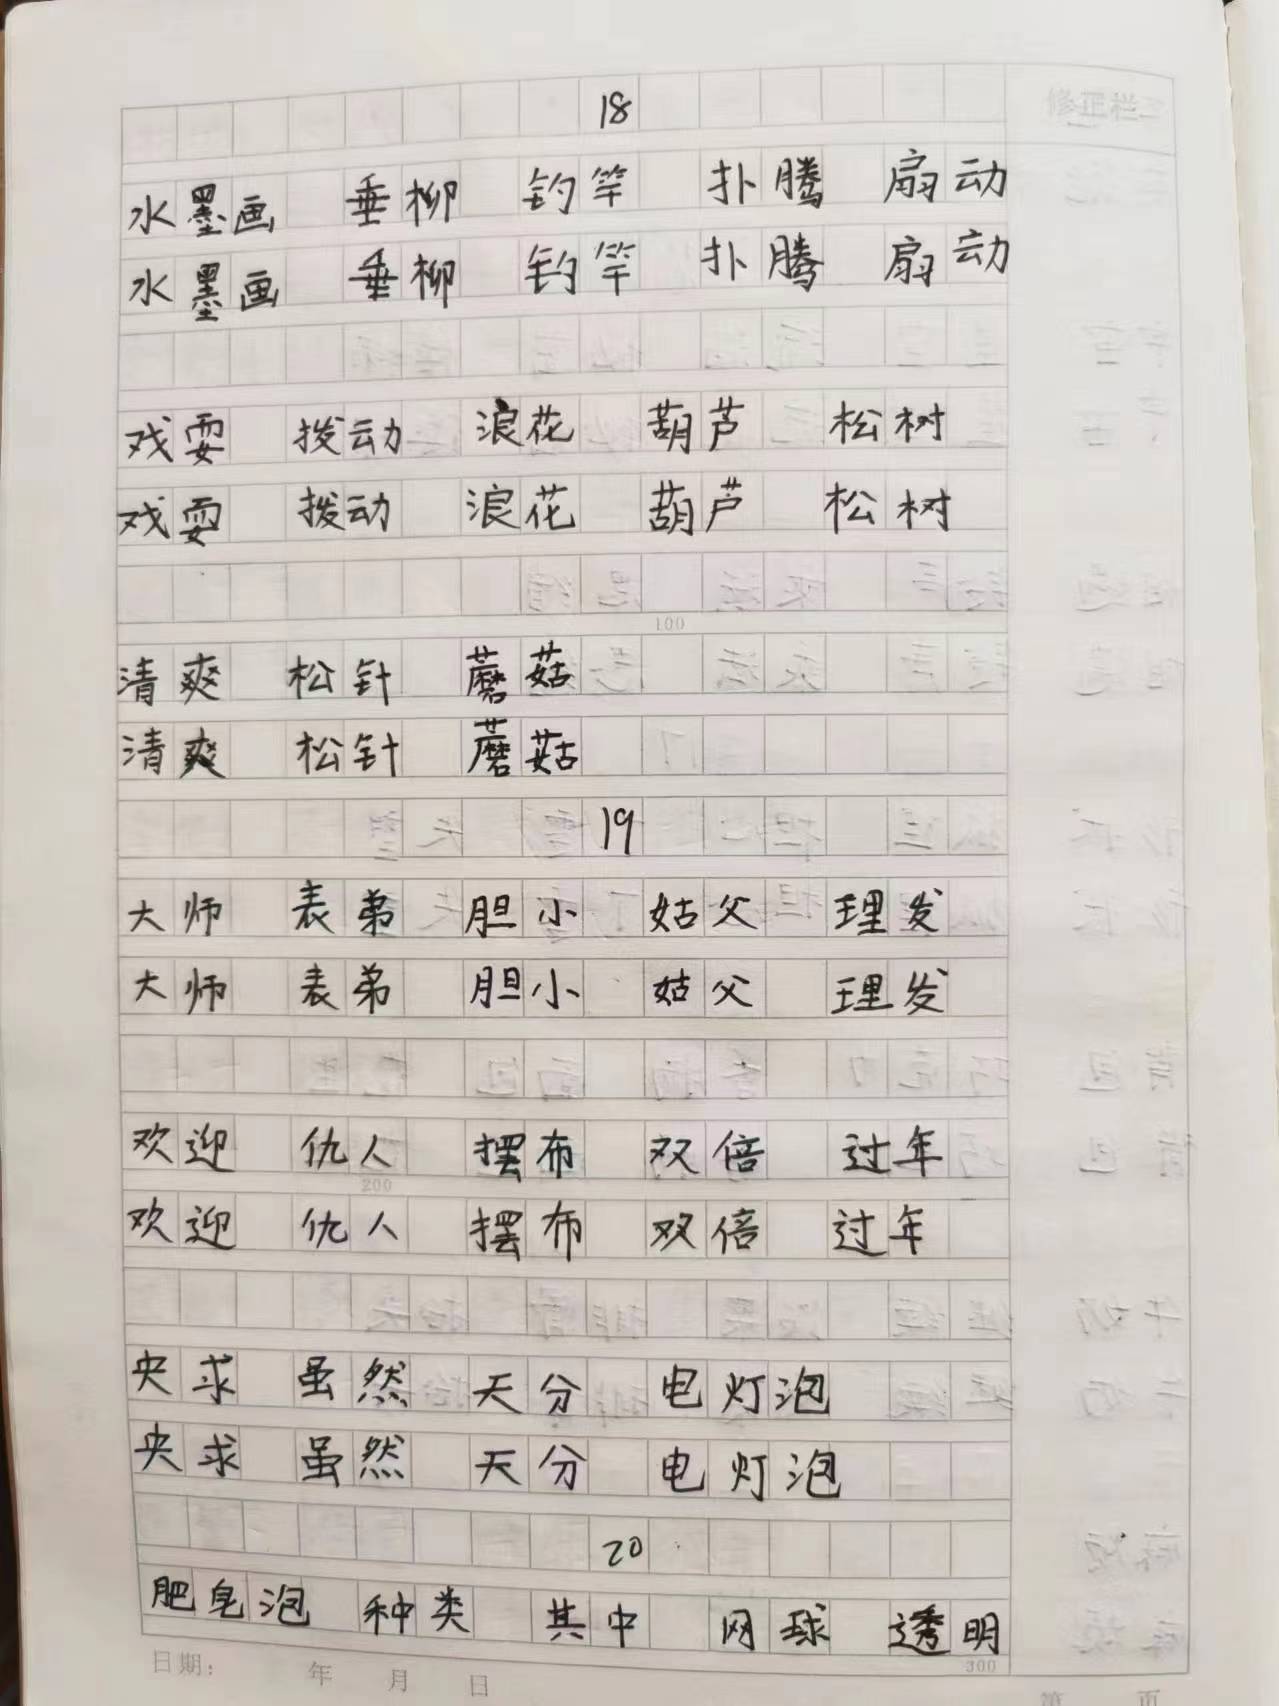 18
修正栏
水墨画 垂柳 钓竿 扑腾 扇动
水墨画 垂柳 钓竿 扑腾 扇动
戏耍 拨动 浪花 葫芦 松树
戏耍 拨动 浪花 葫芦 松树
100
清爽 松针 蘑菇
清爽 松针 蘑菇
19
大师 表弟 胆小 姑父 理发
大师 表弟 胆小 姑父 理发
欢迎 仇人 摆布 双倍 过年
200
欢迎 仇人 摆布 双倍 过年
央求 虽然 天分 电灯泡
央求 虽然 天分 电灯泡
20
肥皂泡 种类 其中 网球 透明
300
日期: 年 月 日
第 页